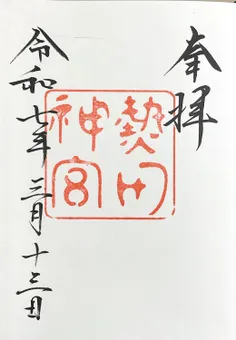 奉拝
熱田
神宮
令和七年三月十三日